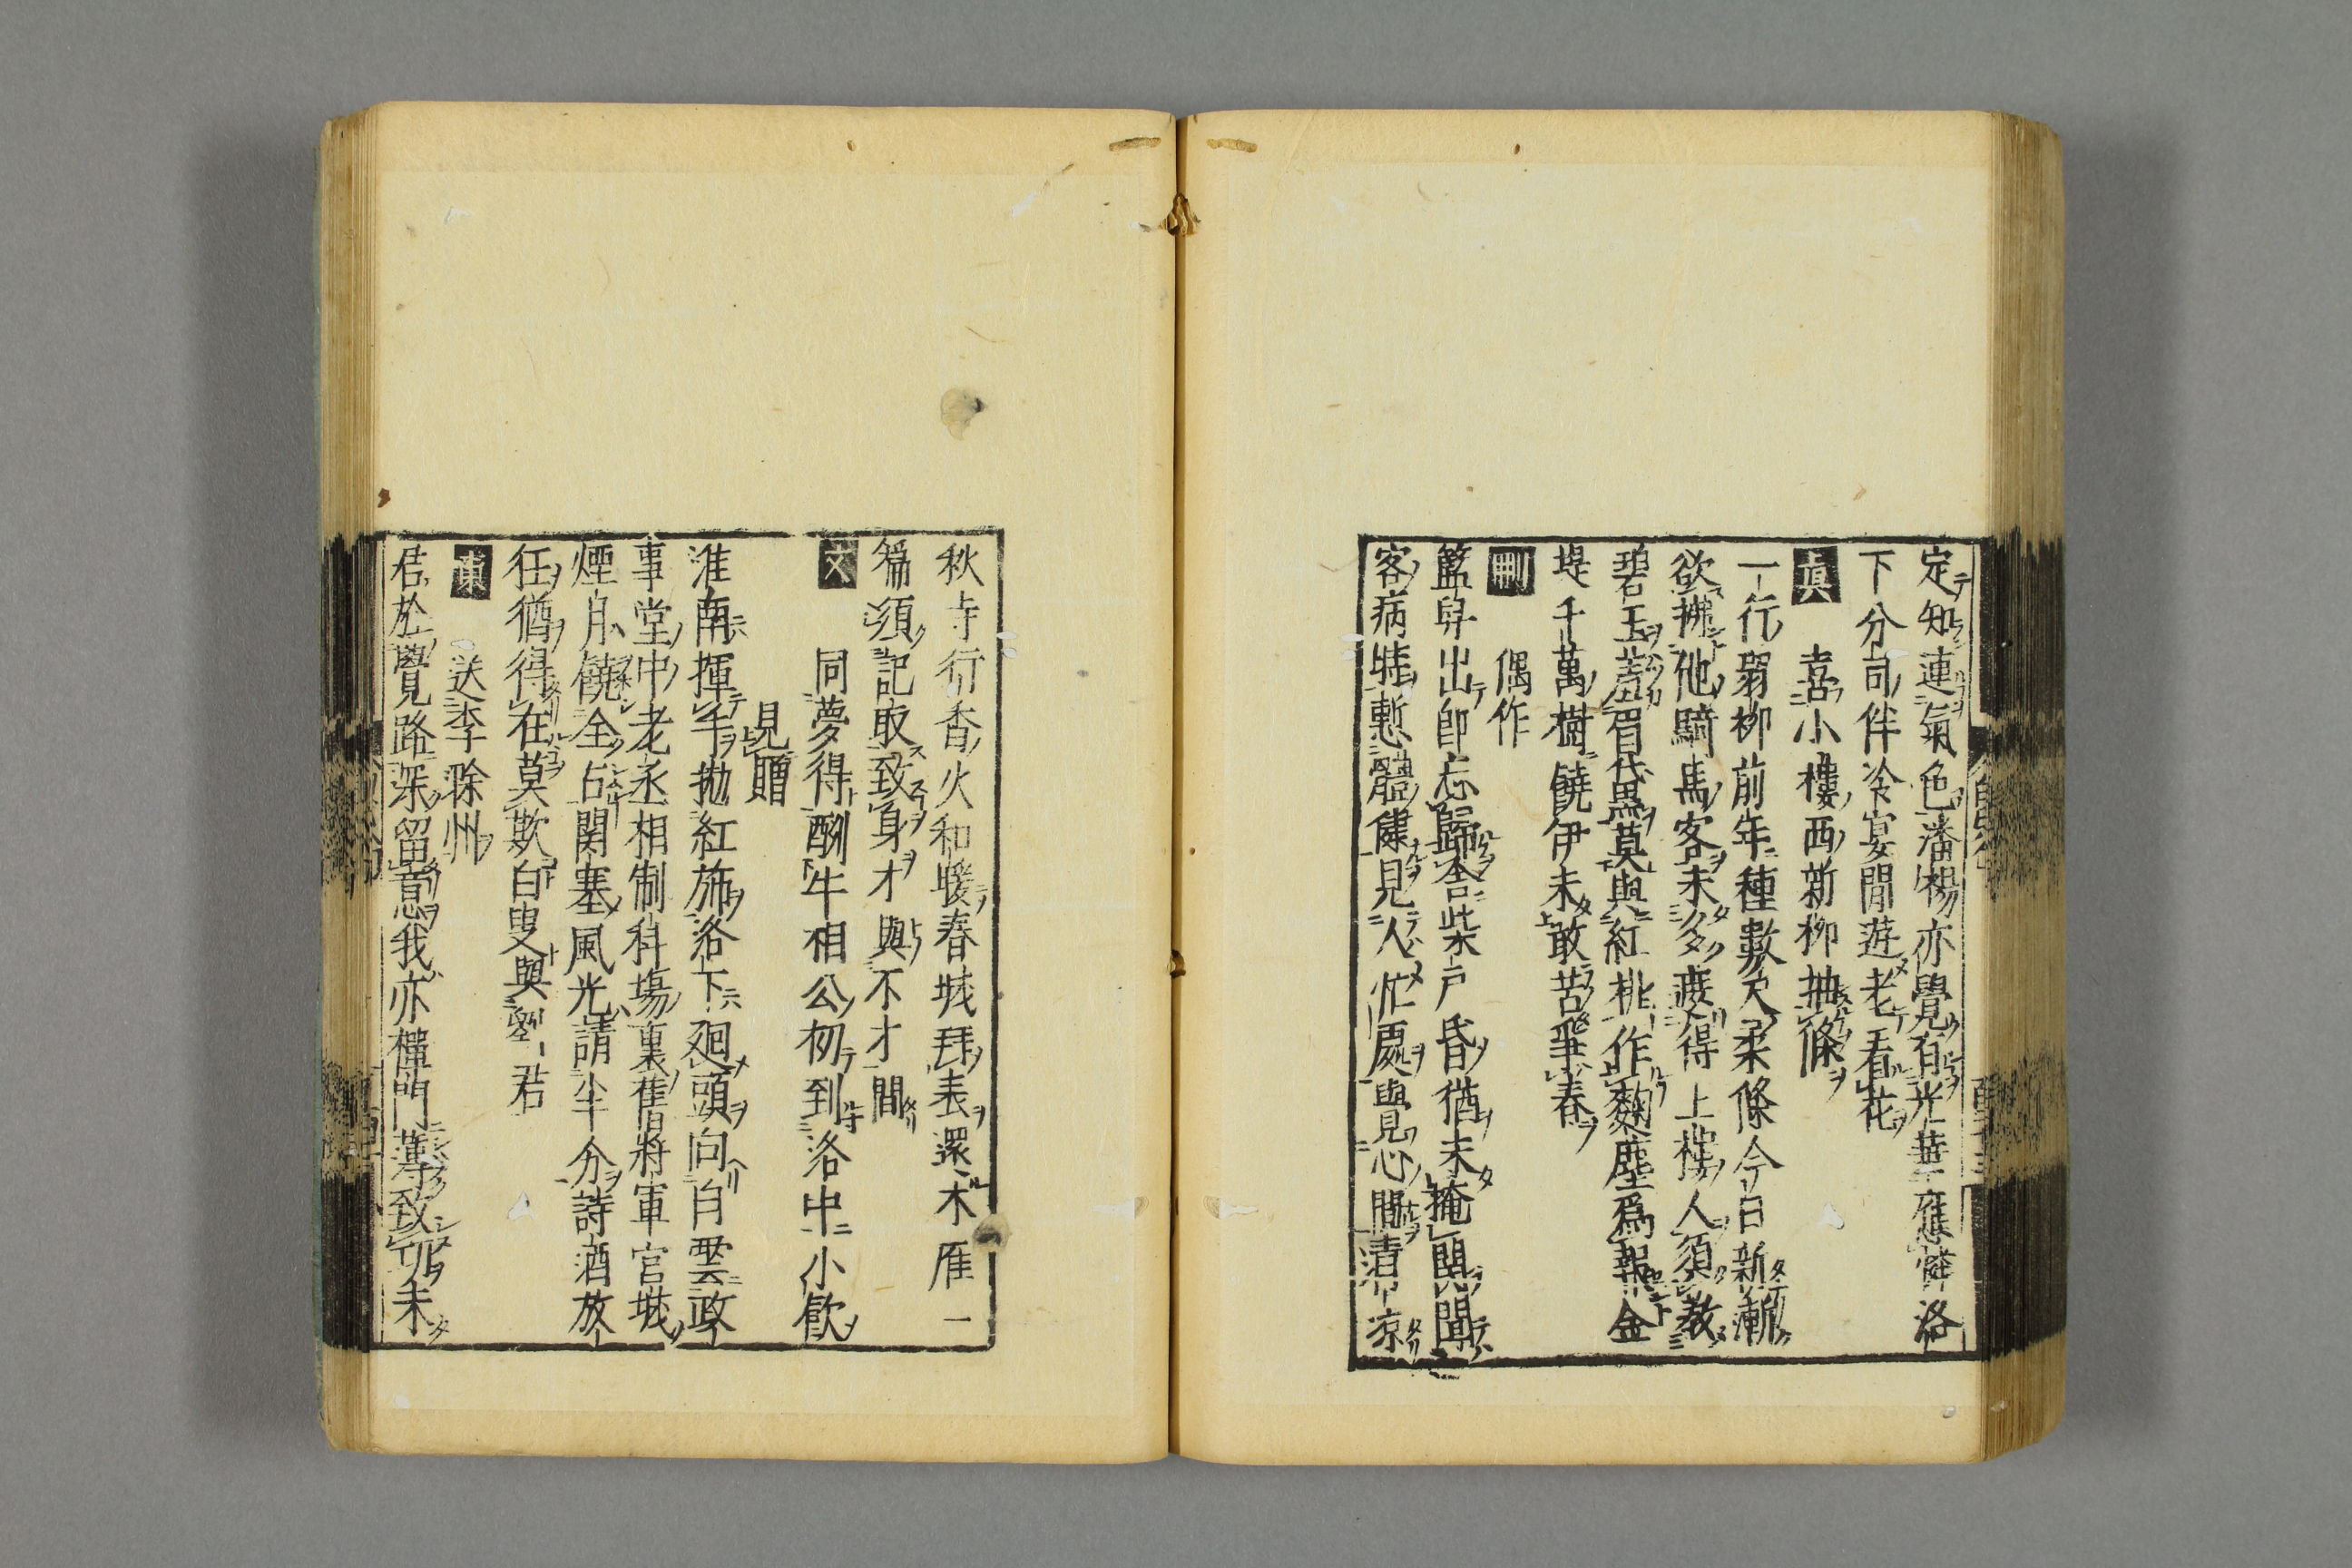 定知連氣色潘楊亦覺有光華應憐洛
下分司伴冷宴閒遊老看花
眞 喜小樓西新柳抽條
一行弱柳前年種數尺柔條今日新漸
欲拂他騎馬客未多遮得上樓人須教
碧玉羞眉黛莫與紅桃作麴塵爲報金
堤千萬樹饒伊未敢苦爭春
刪 偶作
籃舁出卽忘歸舍柴戶昏猶未掩關聞
客病時慙體健見人忙處覺心閒清凉
秋寺行香火和暖春城拜表還木雁一
篇須記取致身才與不才間
文 同夢得酬牛相公初到洛中小飮
見贈
淮南揮手抛紅旆洛下廻頭向白雲政
事堂中老丞相制科塲裏舊將軍官城
煙月饒全占關塞風光請半分詩酒放
任猶得在莫欺白叟與劉君
東 送李滁州
君於覺路深留意我亦禪門薄致功未